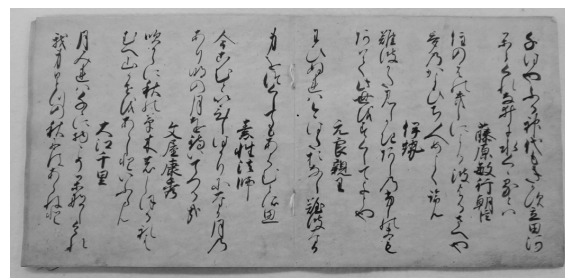 ちはやふる神代もきかす立田河
からくれなゐに水くゝるとは
藤原敏行朝臣
住のえのきしによる波よるさへや
夢のかよひち人めよくらん
伊勢
難波かたみしかき芦のふしの間も
あはて此世をすくしてよとや
元良親王
わひぬれは今はたおなし難波なる
身をつくしてもあはむとそ思
素性法師
今こむといひしはかりに長月の
あり明の月を待いてつる哉
文屋康秀
吹からに秋の草木のしほるれは
むへ山かせをあらしといふらん
大江千里
月みれは千々に物こそかなしけれ
我身ひとつの秋にはあらねと